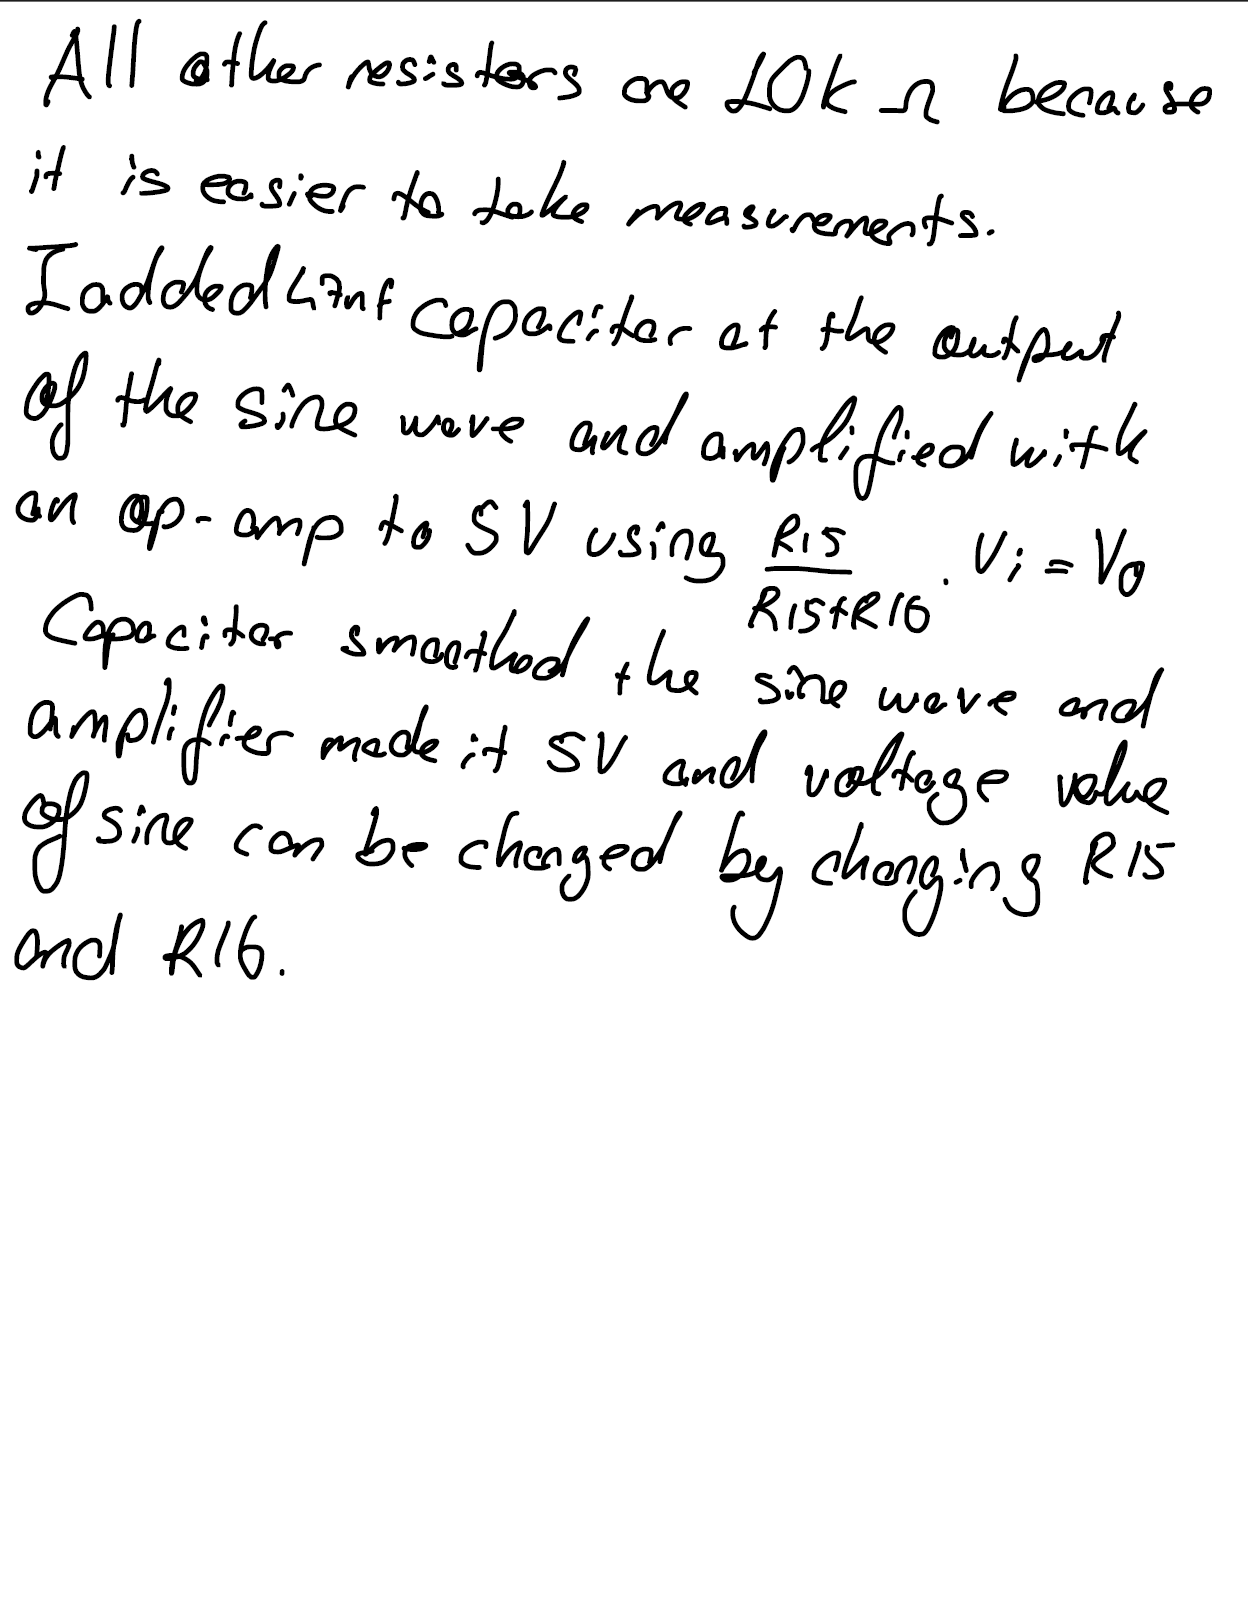 All other resistors are 10k Ω because
it is easier to take measurements.
I added 47nf capacitor at the output
of the sine wave and amplified with
an op-amp to 5V using R15/R15+R16 . Vi = Vo
Capacitor smoothed the sine wave and
amplifier made it 5V and voltage value
of sine can be changed by changing R15
and R16.